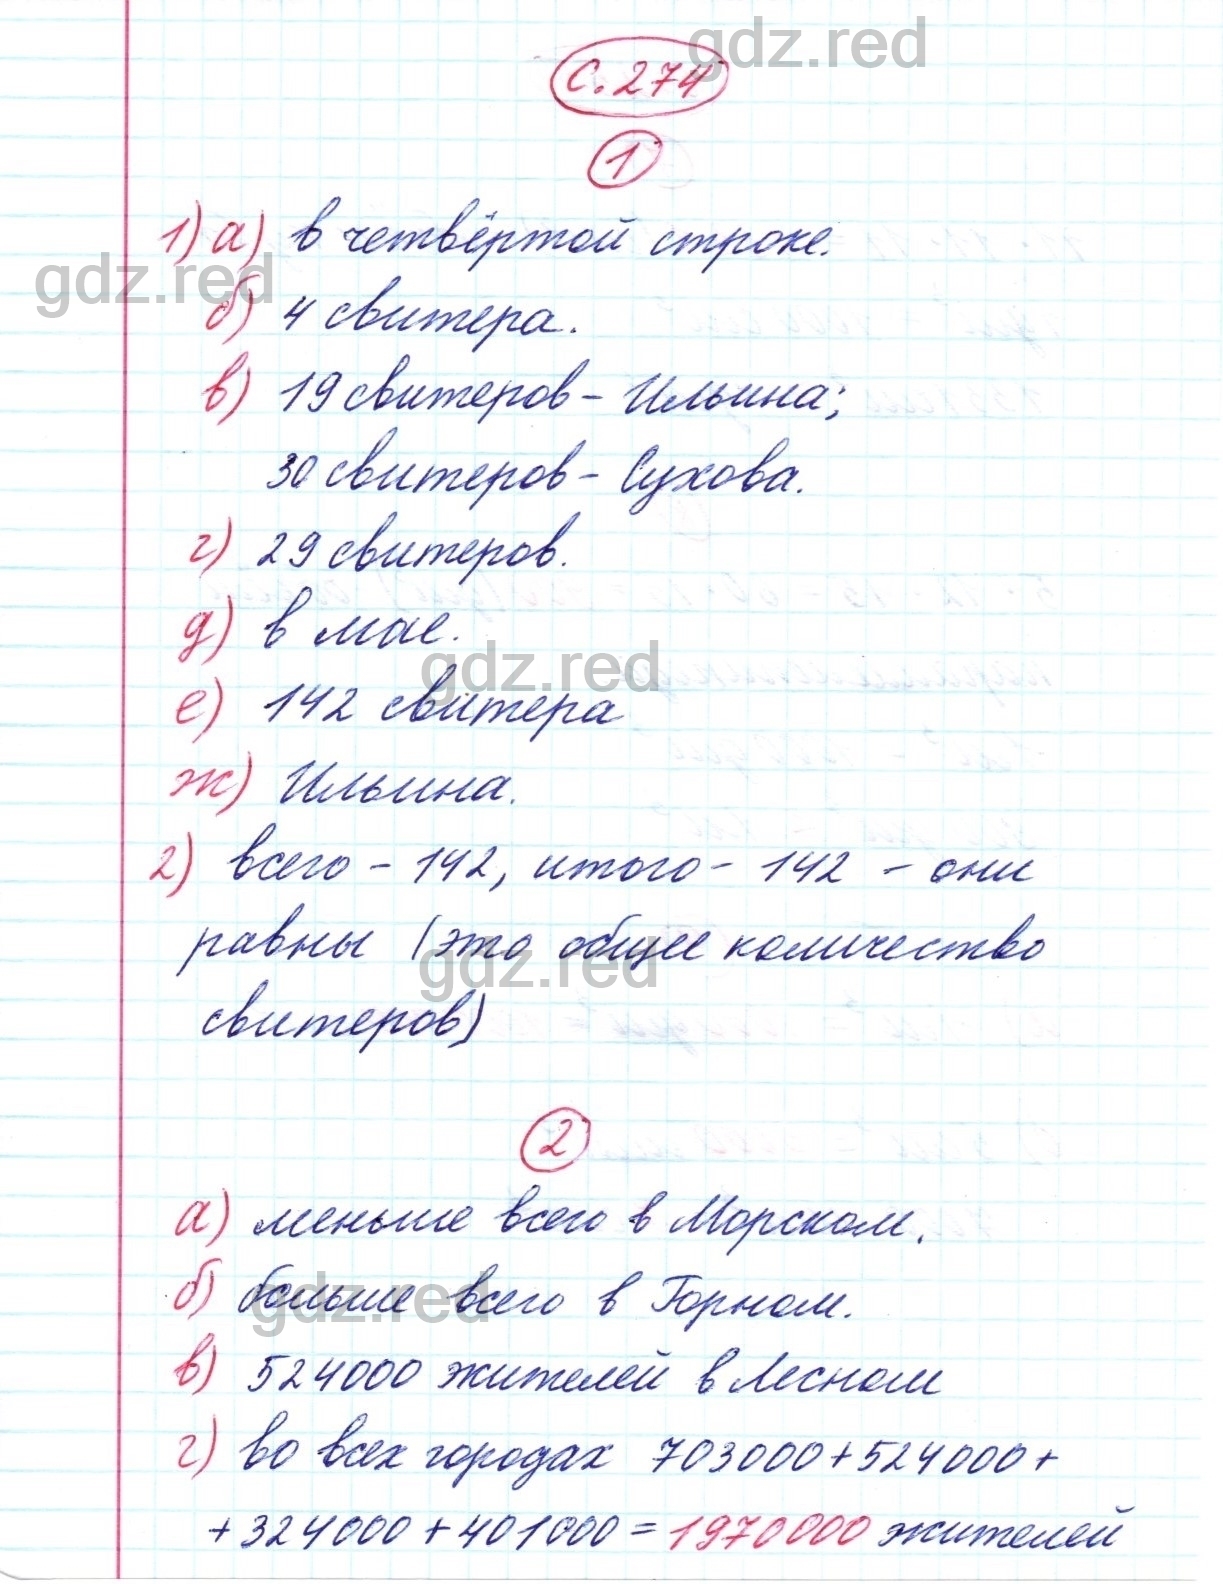 gdz.red
с. 274
1
1) а) в четвёртой строке.
gdz.red
б) 4 свитера.
в) 19 свитеров - Ильина;
30 свитеров - Сухова.
г) 29 свитеров.
д) в мае.
gdz.red
е) 142 свитера
ж) Ильина.
2) всего - 142, итого - 142 - они
равны (это общее количество
gdz.red
свитеров)
2
а) меньше всего в Морском.
б) больше всего в Горном.
gdz.red
в) 524000 жителей в Лесном
г) во всех городах 703000 + 524000 +
+ 324000 + 401000 = 1970000 жителей